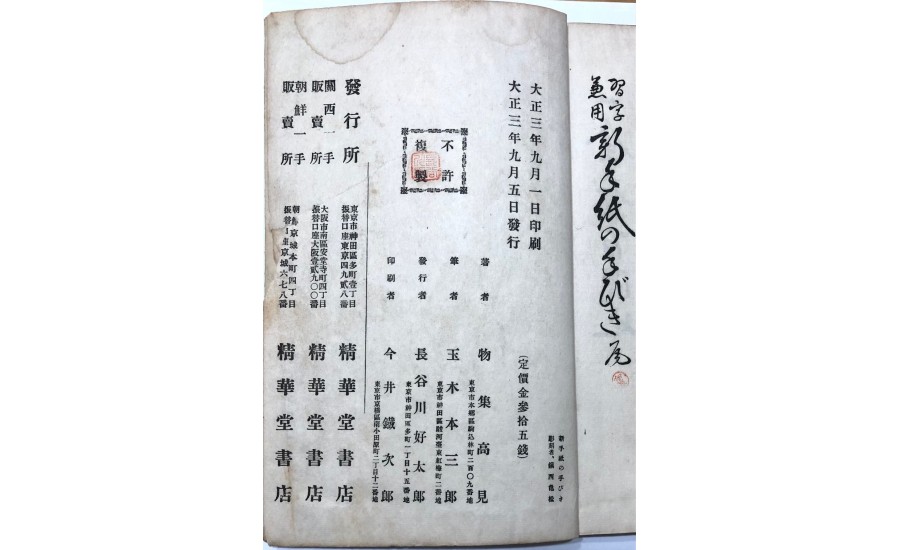 習字
兼用
新手紙の手びき 尾
大正三年九月一日印刷
大正三年九月五日發行
(定價金參拾五錢)
新手紙の手びき
不許
複製
著者 物集高見
東京市本鄕區駒込林町二百〇九番地
筆者 玉木本三郎
東京市神田區駿河臺東紅梅町二番地
發行者 長谷川好太郎
東京市神田區多町一丁目十五番地
印刷者 今井鐵次郎
東京市京橋區南小田原町二丁目十二番地
發行所
東京市神田區多町壹丁目
振替口座東京四九貳八番
精華堂書店
關西一手
販賣所
大阪市南區安堂寺町四丁目
振替口座大阪壹貳九〇〇番
精華堂書店
朝鮮一手
販賣所
朝鮮京城本町四丁目
振替口座京城六七八番
精華堂書店